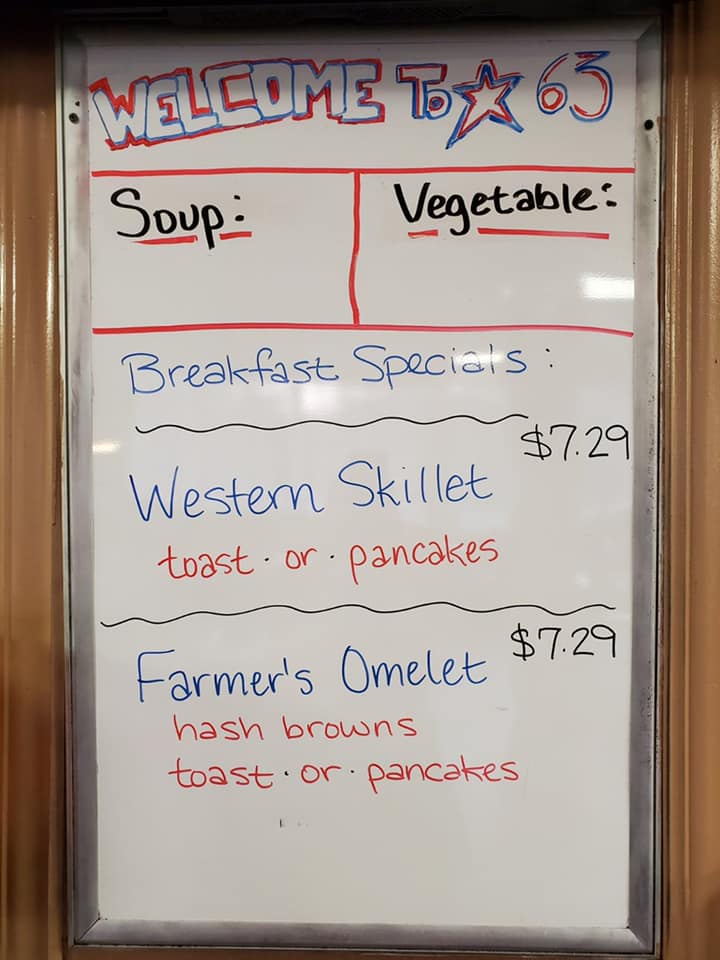 WELCOME To ☆ 63
Soup:
Vegetable:
Breakfast Specials:
$7.29
Western Skillet
toast · or · pancakes
$7.29
Farmer's Omelet
hash browns
toast · or · pancakes